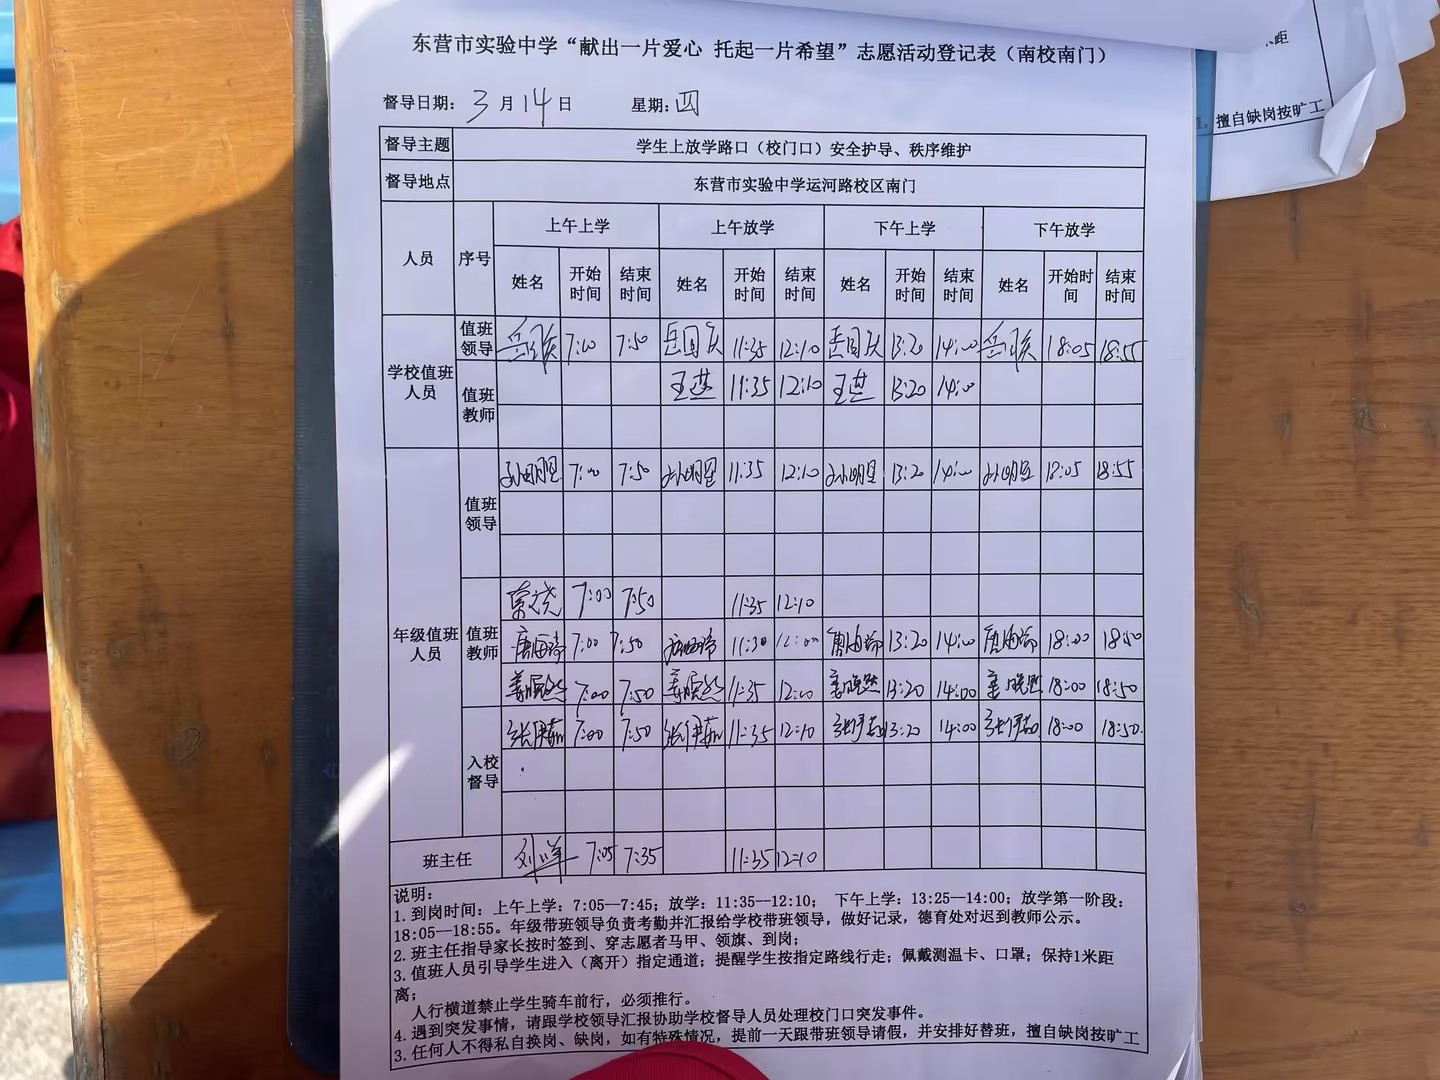 东营市实验中学“献出一片爱心 托起一片希望”志愿活动登记表（南校南门）
督导日期：3月14日 星期：四
督导主题 学生上放学路口（校门口）安全护导、秩序维护
督导地点 东营市实验中学运河路校区南门
人员 序号 上午上学 上午放学 下午上学 下午放学
姓名 开始时间 结束时间 姓名 开始时间 结束时间 姓名 开始时间 结束时间 姓名 开始时间 结束时间
学校值班人员
值班领导 7:00 7:50 岳国庆 11:35 12:10 岳国庆 13:20 14:00 18:05 18:55
值班教师 王燕 11:35 12:10 王燕 13:20 14:00
年级值班人员
值班领导 7:00 7:50 11:35 12:10 13:20 14:00 18:05 18:55
值班教师 7:00 7:50 11:35 12:10
唐海琦 7:00 7:50 唐海琦 11:30 12:00 唐海琦 13:20 14:00 唐海琦 18:00
姜晓然 7:00 7:50 姜晓然 11:35 姜晓然 13:20 14:00 姜晓然 18:00 18:50
入校督导 张伊茹 7:00 7:50 张伊茹 11:35 12:10 张伊茹 13:20 14:00 张伊茹 18:00 18:50.
班主任 刘洋 7:05 7:35 11:35 12:10
说明：
1. 到岗时间：上午上学：7:05—7:45；放学：11:35--12:10； 下午上学：13:25—14:00；放学第一阶段：
18:05--18:55。年级带班领导负责考勤并汇报给学校带班领导，做好记录，德育处对迟到教师公示。
2. 班主任指导家长按时签到、穿志愿者马甲、领旗、到岗；
3. 值班人员引导学生进入（离开）指定通道；提醒学生按指定路线行走；佩戴测温卡、口罩；保持1米距
离；
人行横道禁止学生骑车前行，必须推行。
4. 遇到突发事情，请跟学校领导汇报协助学校督导人员处理校门口突发事件。
3. 任何人不得私自换岗、缺岗，如有特殊情况，提前一天跟带班领导请假，并安排好替班，擅自缺岗按旷工
米距
擅自缺岗按旷工